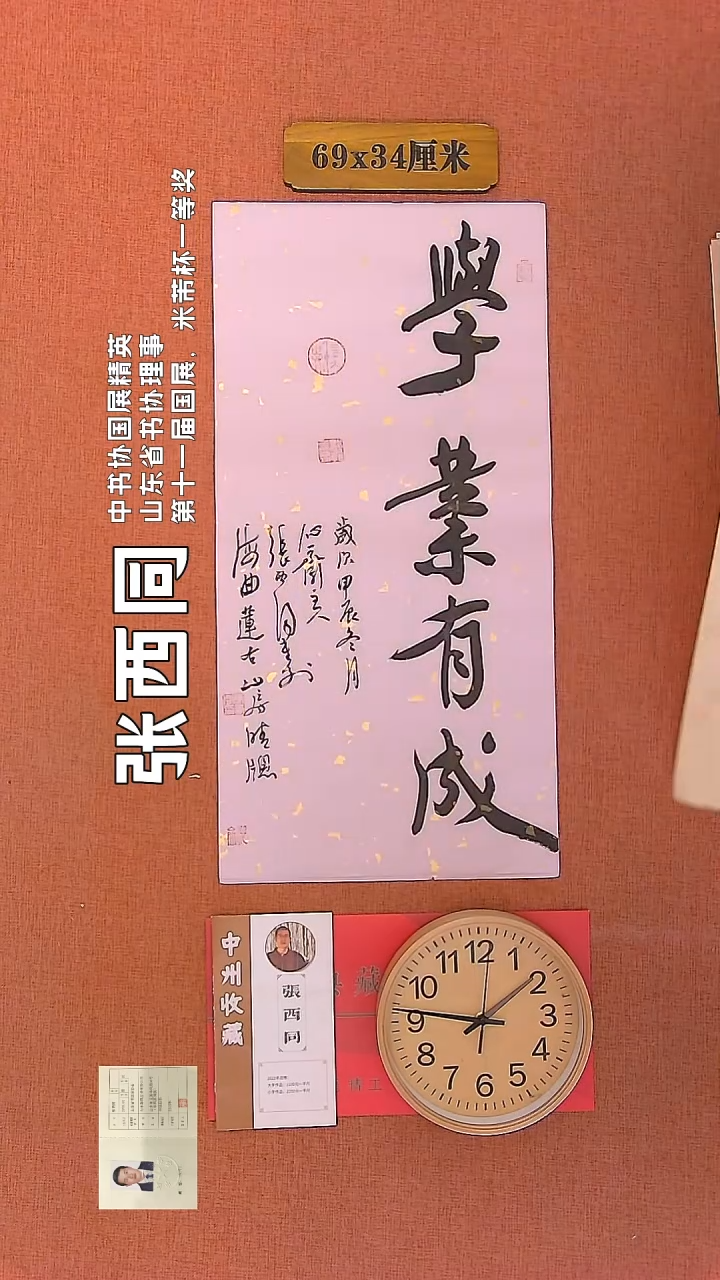 69x34厘米
學業有成
歲次甲辰冬月
心齋主人
張西同書於
海曲蓮古山房晴窗
中书协国展精英
山东省书协理事
第十一届国展，米芾杯一等奖
张西同
中州收藏
張西同
藏
精工
12
1
2
3
4
5
6
7
8
9
10
11